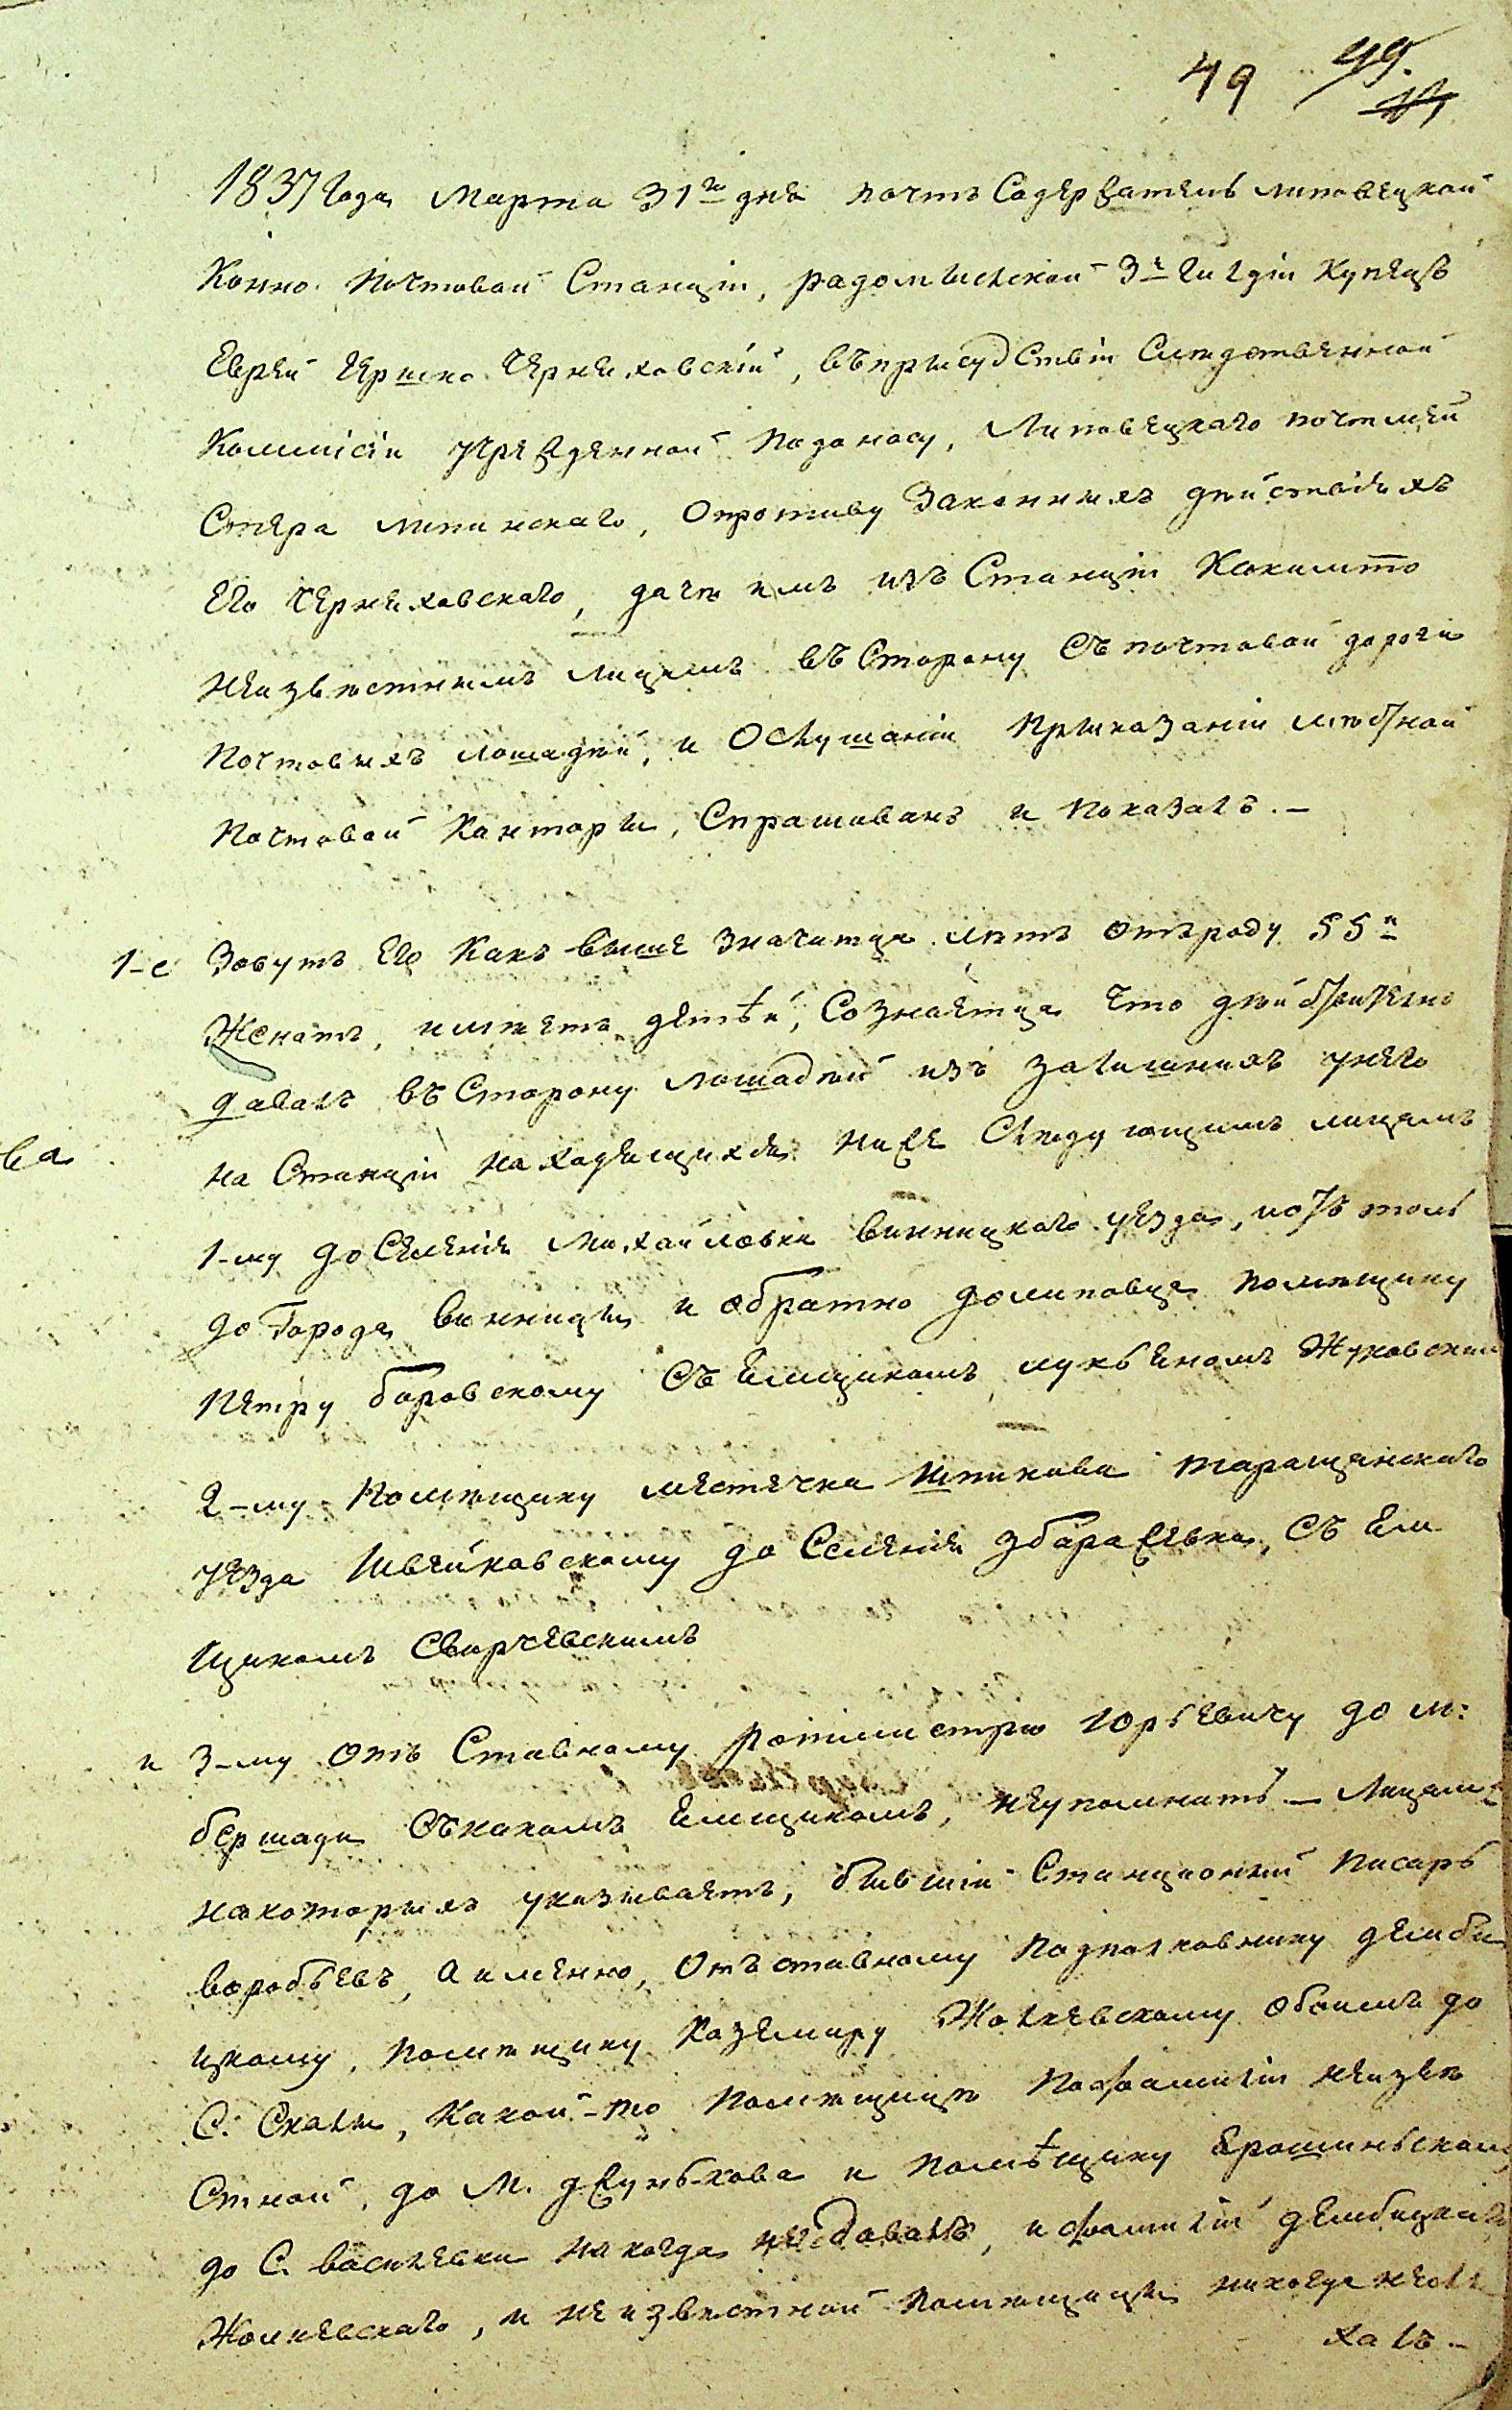 49 49.
1837 года Марта 31го дня почтъ Содержатель липовецкой
Конно Почтовой Станціи, радомысльской 3й гильдіи Купецъ
Еврей Гершко Черняховскій, въ присудствіи Следственной
Коммисіи учрежденной по доносу, Липовецкаго почтмей
Стера липинскаго, опротиву Законныхъ действіяхъ
его Черняховскаго, даче имъ изъ Станціи Какимто
неизвестнымъ лицамъ въ Сторону съ почтовой дороги
Почтовыхъ лошадей, и ослушаніи приказаніи местной
Почтовой Конторы, Спрашиванъ и показалъ. —
1-е Зовутъ его Какъ выше значитца летъ отъроду 55ть
Женатъ, имеетъ детѣй, Сознаетца что действительно
давалъ въ Сторону лошадей изъ залишнихъ унего
ва
на Станціи находящихся ниже Следующимъ лицамъ
1-му до Селенія Михайловки винницкаго уезда, потомъ
до Города винницы и обратно долиповца помещику
Петру боровскому съ емщикомъ лукьяномъ Жуковским
2-му Помещику местечка Шпикова таращанскаго
уезда Швейковскому до Селенія збаражевки, съ ем
щикомъ Свирчевскимъ
и 3-му отъ Ставному Ротмистру Юрьевичу до м:
бершади съкакомъ емщикомъ, неупомнитъ — Лицамъ
накоторыхъ указываетъ, бывшій Станціонный писарь
воробьевъ, а именно, отъ ставному подполковнику дембе
цкому, помещику Каземиру Жолкевскому обоимъ до
С. Скалы, какой-то помещице пофамиліи неизве
Стной, до М. джунькова и помѣщику Ярошинскому
до С. василевки никогда недавалъ, и фамиліи дембицкаго
Жолкевскаго, и неизвестной помещицы никогда неслы
халъ —